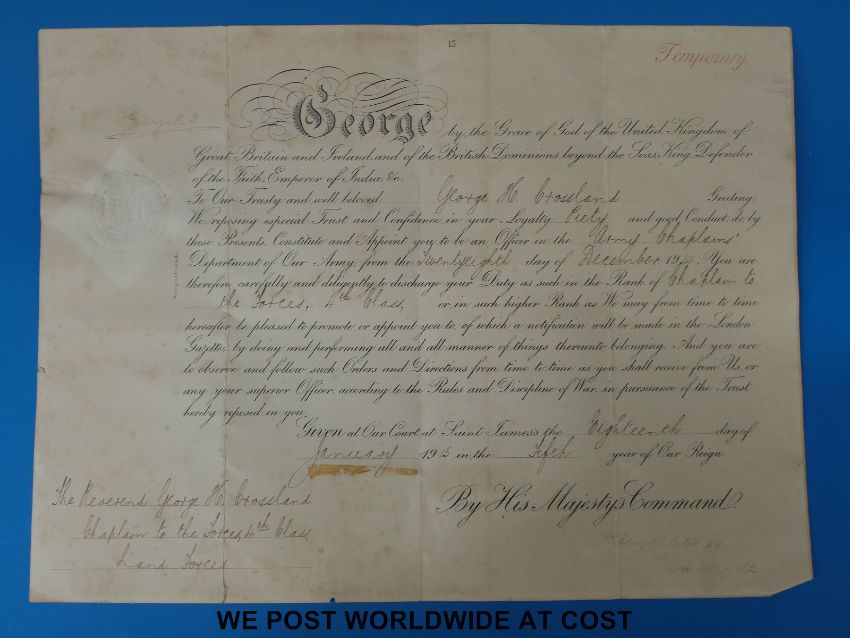 15
Temporary
George
by the Grace of God of the United Kingdom of
Great Britain and Ireland, and of the British Dominions beyond the Seas, King, Defender
of the Faith, Emperor of India, &c.
To Our Trusty and well beloved George H Crossland Greeting:
We, reposing especial Trust and Confidence in your Loyalty, Piety and good Conduct do, by
these Presents, Constitute and Appoint you to be an Officer in the Army Chaplains'
Department of Our Army, from the Twentyeighth day of December 1914. You are
therefore carefully and diligently to discharge your Duty as such in the Rank of Chaplain to
the Forces, 4th Class, or in such higher Rank as We may from time to time
hereafter be pleased to promote or appoint you to, of which a notification will be made in the London
Gazette, by doing and performing all and all manner of things thereunto belonging. And you are
to observe and follow such Orders and Directions from time to time as you shall receive from Us, or
any your superior Officer, according to the Rules and Discipline of War, in pursuance of the Trust
hereby reposed in you.
Given at Our Court at Saint James's the Eighteenth day of
January 1915 in the Fifth year of Our Reign
By His Majesty's Command.
The Reverend George H. Crossland
Chaplain to the Forces, 4th Class,
Land Forces
WE POST WORLDWIDE AT COST